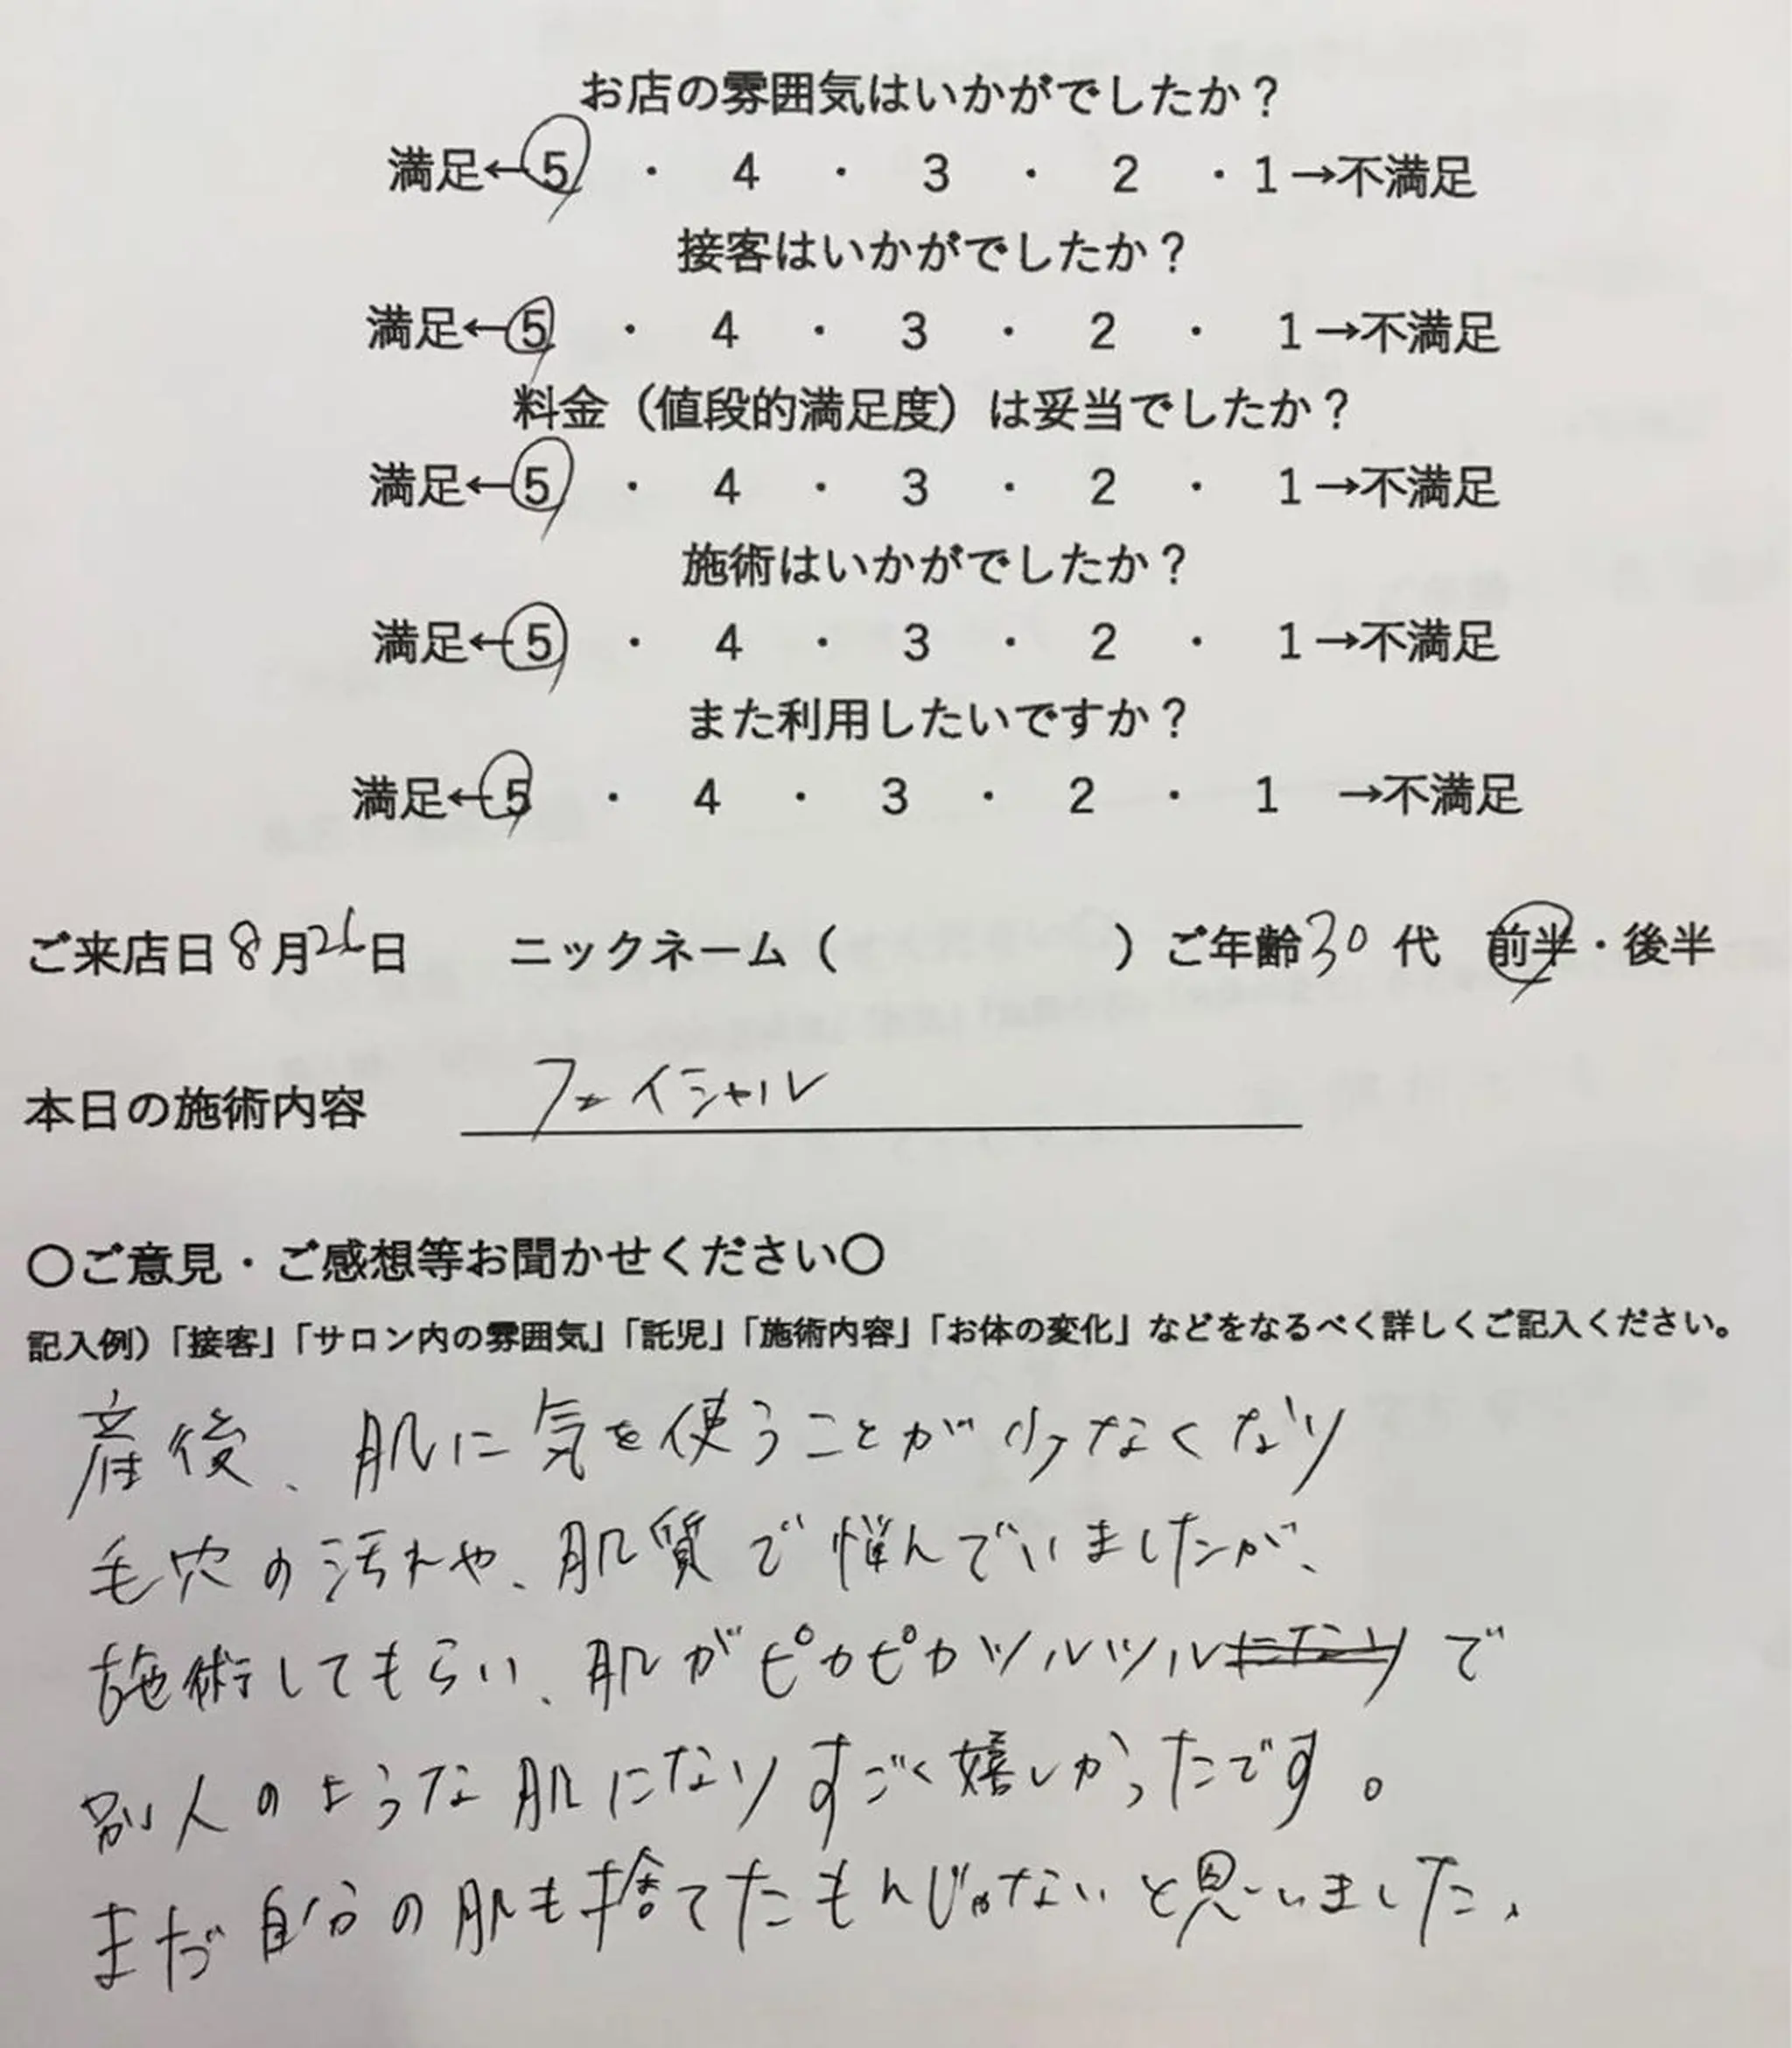 お店の雰囲気はいかがでしたか？
満足←5 ・ 4 ・ 3 ・ 2 ・ 1→不満足
接客はいかがでしたか？
満足←5 ・ 4 ・ 3 ・ 2 ・ 1→不満足
料金（値段的満足度）は妥当でしたか？
満足←5 ・ 4 ・ 3 ・ 2 ・ 1→不満足
施術はいかがでしたか？
満足←5 ・ 4 ・ 3 ・ 2 ・ 1→不満足
また利用したいですか？
満足←5 ・ 4 ・ 3 ・ 2 ・ 1 →不満足
ご来店日8月26日 ニックネーム（ ）ご年齢30代 前半・後半
本日の施術内容 フェイシャル
〇ご意見・ご感想等お聞かせください〇
記入例）「接客」「サロン内の雰囲気」「託児」「施術内容」「お体の変化」などをなるべく詳しくご記入ください。
産後、肌に気を使うことが少なくなり
毛穴の汚れや、肌質で悩んでいましたが、
施術してもらい、肌がピカピカツルツルになりで
別人のような肌になりすごく嬉しかったです。
まだ自分の肌も捨てたもんじゃないと思いました、